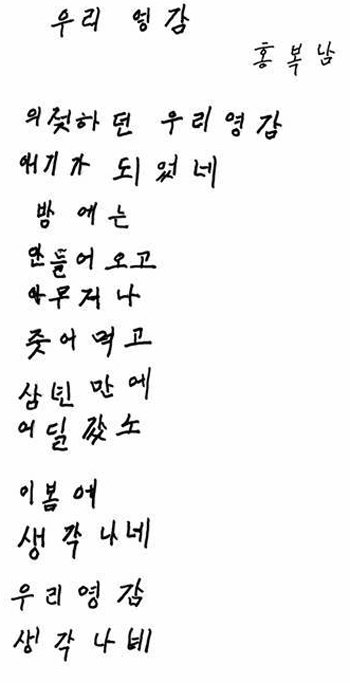 우리 영감
홍복남
의젓하던 우리영감
애기가 되었네
밤에는
안들어오고
아무거나
줏어먹고
삼년만에
어딜갔소
이봄에
생각나네
우리영감
생각나네